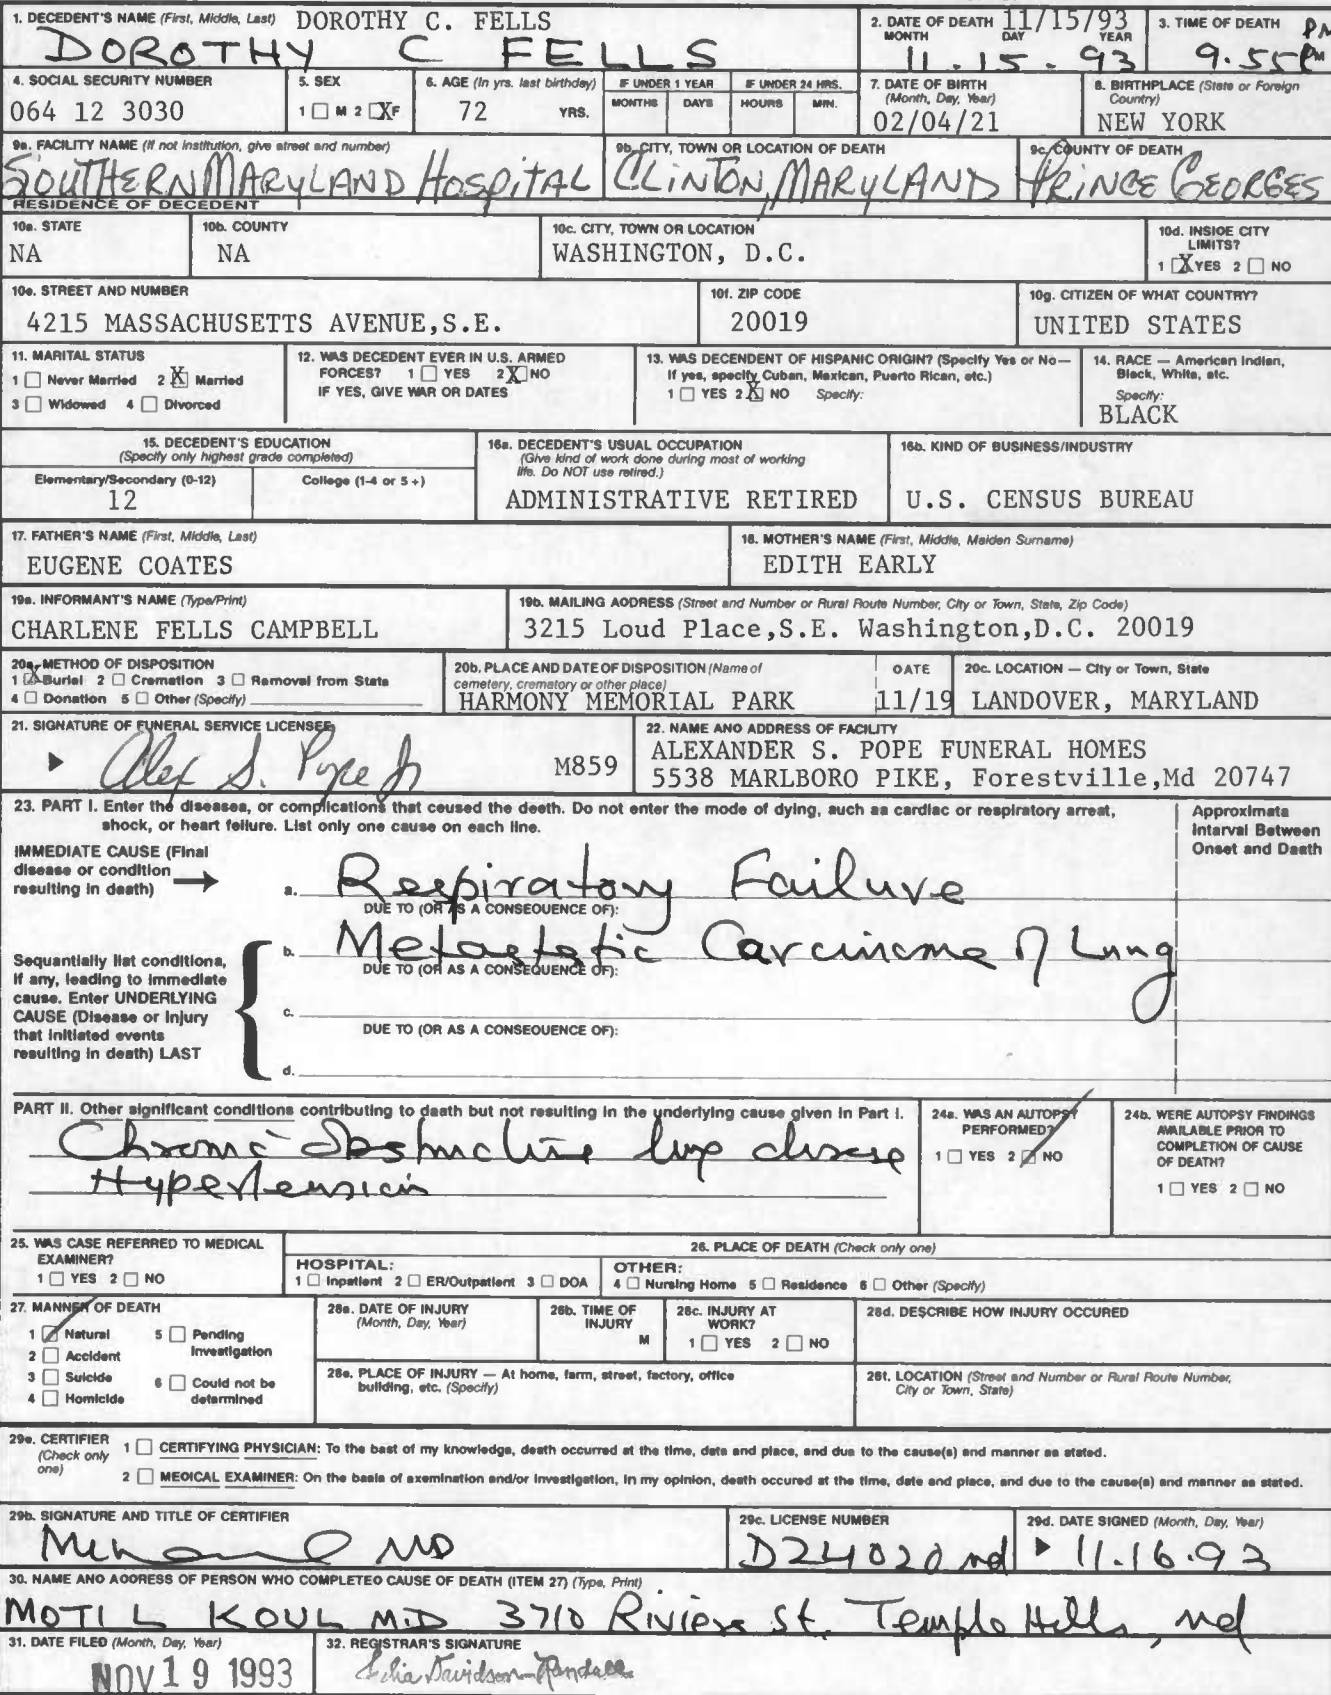 1. DECEDENT'S NAME (First, Middle, Last) DOROTHY C. FELLS
DOROTHY C FELLS
2. DATE OF DEATH 11/15/93
MONTH DAY YEAR
11.15.93
3. TIME OF DEATH PM
9.55 PM
4. SOCIAL SECURITY NUMBER
064 12 3030
5. SEX
1 ☐ M 2 ☒ F
6. AGE (In yrs. last birthday)
72 YRS.
IF UNDER 1 YEAR
MONTHS DAYS
IF UNDER 24 HRS.
HOURS MIN.
7. DATE OF BIRTH
(Month, Day, Year)
02/04/21
8. BIRTHPLACE (State or Foreign
Country)
NEW YORK
9a. FACILITY NAME (If not institution, give street and number)
SOUTHERN MARYLAND HOSPITAL
9b. CITY, TOWN OR LOCATION OF DEATH
CLINTON, MARYLAND
9c. COUNTY OF DEATH
PRINCE GEORGES
RESIDENCE OF DECEDENT
10a. STATE
NA
10b. COUNTY
NA
10c. CITY, TOWN OR LOCATION
WASHINGTON, D.C.
10d. INSIDE CITY
LIMITS?
1 ☒ YES 2 ☐ NO
10e. STREET AND NUMBER
4215 MASSACHUSETTS AVENUE,S.E.
10f. ZIP CODE
20019
10g. CITIZEN OF WHAT COUNTRY?
UNITED STATES
11. MARITAL STATUS
1 ☐ Never Married 2 ☒ Married
3 ☐ Widowed 4 ☐ Divorced
12. WAS DECEDENT EVER IN U.S. ARMED
FORCES? 1 ☐ YES 2 ☒ NO
IF YES, GIVE WAR OR DATES
13. WAS DECENDENT OF HISPANIC ORIGIN? (Specify Yes or No—
If yes, specify Cuban, Mexican, Puerto Rican, etc.)
1 ☐ YES 2 ☒ NO Specify:
14. RACE — American Indian,
Black, White, etc.
Specify:
BLACK
15. DECEDENT'S EDUCATION
(Specify only highest grade completed)
Elementary/Secondary (0-12) College (1-4 or 5+)
12
16a. DECEDENT'S USUAL OCCUPATION
(Give kind of work done during most of working
life. Do NOT use retired.)
ADMINISTRATIVE RETIRED
16b. KIND OF BUSINESS/INDUSTRY
U.S. CENSUS BUREAU
17. FATHER'S NAME (First, Middle, Last)
EUGENE COATES
18. MOTHER'S NAME (First, Middle, Maiden Surname)
EDITH EARLY
19a. INFORMANT'S NAME (Type/Print)
CHARLENE FELLS CAMPBELL
19b. MAILING ADDRESS (Street and Number or Rural Route Number, City or Town, State, Zip Code)
3215 Loud Place,S.E. Washington,D.C. 20019
20a. METHOD OF DISPOSITION
1 ☒ Burial 2 ☐ Cremation 3 ☐ Removal from State
4 ☐ Donation 5 ☐ Other (Specify)
20b. PLACE AND DATE OF DISPOSITION (Name of
cemetery, crematory or other place)
HARMONY MEMORIAL PARK
DATE
11/19
20c. LOCATION — City or Town, State
LANDOVER, MARYLAND
21. SIGNATURE OF FUNERAL SERVICE LICENSEE
Alex S. Pope Jr M859
22. NAME AND ADDRESS OF FACILITY
ALEXANDER S. POPE FUNERAL HOMES
5538 MARLBORO PIKE, Forestville,Md 20747
23. PART I. Enter the diseases, or complications that caused the death. Do not enter the mode of dying, such as cardiac or respiratory arrest,
shock, or heart failure. List only one cause on each line.
Approximate
Interval Between
Onset and Death
IMMEDIATE CAUSE (Final
disease or condition
resulting in death)
a. Respiratory Failure
DUE TO (OR AS A CONSEQUENCE OF):
b. Metastatic Carcinoma of Lung
DUE TO (OR AS A CONSEQUENCE OF):
Sequentially list conditions,
if any, leading to immediate
cause. Enter UNDERLYING
CAUSE (Disease or injury
that initiated events
resulting in death) LAST
c.
DUE TO (OR AS A CONSEQUENCE OF):
d.
PART II. Other significant conditions contributing to death but not resulting in the underlying cause given in Part I.
Chronic obstructive lung disease
Hypertension
24a. WAS AN AUTOPSY
PERFORMED?
1 ☐ YES 2 ☑ NO
24b. WERE AUTOPSY FINDINGS
AVAILABLE PRIOR TO
COMPLETION OF CAUSE
OF DEATH?
1 ☐ YES 2 ☐ NO
25. WAS CASE REFERRED TO MEDICAL
EXAMINER?
1 ☐ YES 2 ☐ NO
26. PLACE OF DEATH (Check only one)
HOSPITAL:
1 ☐ Inpatient 2 ☐ ER/Outpatient 3 ☐ DOA
OTHER:
4 ☐ Nursing Home 5 ☐ Residence 6 ☐ Other (Specify)
27. MANNER OF DEATH
1 ☑ Natural 5 ☐ Pending
Investigation
2 ☐ Accident
3 ☐ Suicide 6 ☐ Could not be
4 ☐ Homicide determined
28a. DATE OF INJURY
(Month, Day, Year)
28b. TIME OF
INJURY
M
28c. INJURY AT
WORK?
1 ☐ YES 2 ☐ NO
28d. DESCRIBE HOW INJURY OCCURED
28e. PLACE OF INJURY — At home, farm, street, factory, office
building, etc. (Specify)
28f. LOCATION (Street and Number or Rural Route Number,
City or Town, State)
29a. CERTIFIER
(Check only
one)
1 ☐ CERTIFYING PHYSICIAN: To the best of my knowledge, death occurred at the time, date and place, and due to the cause(s) and manner as stated.
2 ☐ MEDICAL EXAMINER: On the basis of examination and/or investigation, in my opinion, death occured at the time, date and place, and due to the cause(s) and manner as stated.
29b. SIGNATURE AND TITLE OF CERTIFIER
MD
29c. LICENSE NUMBER
D24020 md
29d. DATE SIGNED (Month, Day, Year)
11.16.93
30. NAME AND ADDRESS OF PERSON WHO COMPLETED CAUSE OF DEATH (ITEM 27) (Type, Print)
MOTI L KOUL M.D 3710 Riviera St. Temple Hills, md
31. DATE FILED (Month, Day, Year)
NOV 19 1993
32. REGISTRAR'S SIGNATURE
Davidson-Randall